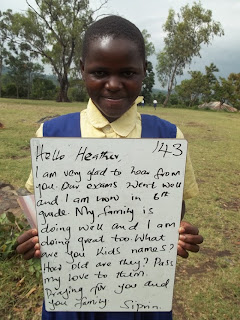 Hello Heather, 143
I am very glad to hear from
you. Our exams went well
and I am now in 6th
grade. My family is
doing well and I am
doing great too. What
are you kids names?
How old are they? Pass
my love to them.
Praying for you and
you family